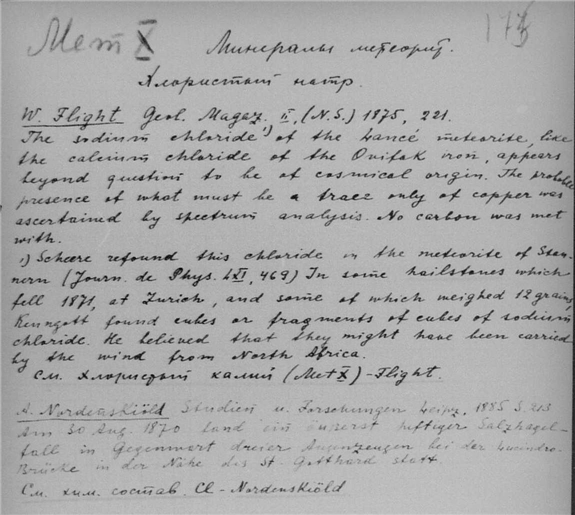 Мет X
175
Минералы метеорит.
Хлористый натр.
W. Flight Geol. Magaz. II, (N.S.) 1875, 221.
The sodium chloride¹) of the Lancé meteorite, like
the calcium chloride of the Ovifak iron, appears
beyond question to be of cosmical origin. The probable
presence of what must be a trace only of copper was
ascertained by spectrum analysis. No carbon was met
with.
¹) Scheere refound this chloride in the meteorite of Stan-
nern (Journ. de Phys. XI, 469) In some hailstones which
fell 1871, at Zurich, and some of which weighed 12 grains,
Kenngott found cubes or fragments of cubes of sodium
chloride. He believed that they might have been carried
by the wind from North Africa.
См. Хлористый калий (Met X) - Flight.
A. Nordenskiöld Studien u. Forschungen Leipz. 1885 S. 213
Am 30 Aug. 1870 fand ein äusserst heftiger Salzhagel-
fall in Gegenwart dreier Augenzeugen bei der Lucendro-
Brücke in der Nähe des St-Gotthard statt.
См. хим. состав. Cl - Nordenskiöld